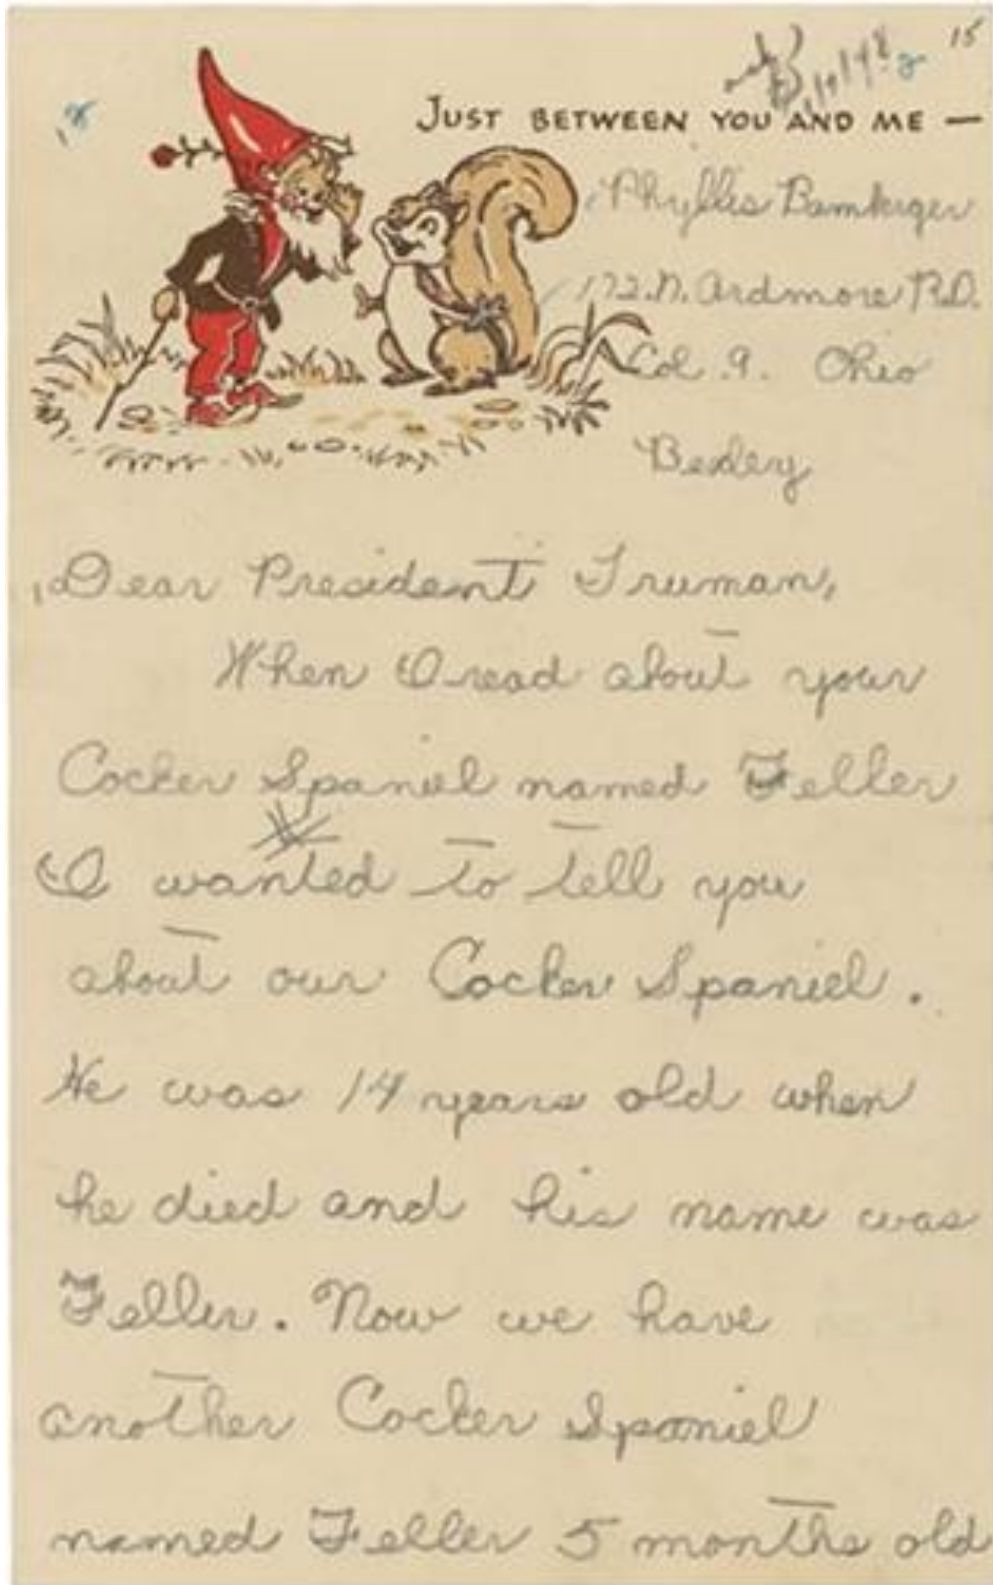 15
JUST BETWEEN YOU AND ME —
Phyllis Bamberger
172. N. Ardmore RD.
Col. 9. Ohio
Bexley
Dear President Truman,
When I read about your
Cocker Spaniel named Feller
I wanted to tell you
about our Cocker Spaniel.
He was 14 years old when
he died and his name was
Feller. Now we have
another Cocker Spaniel
named Feller 5 months old